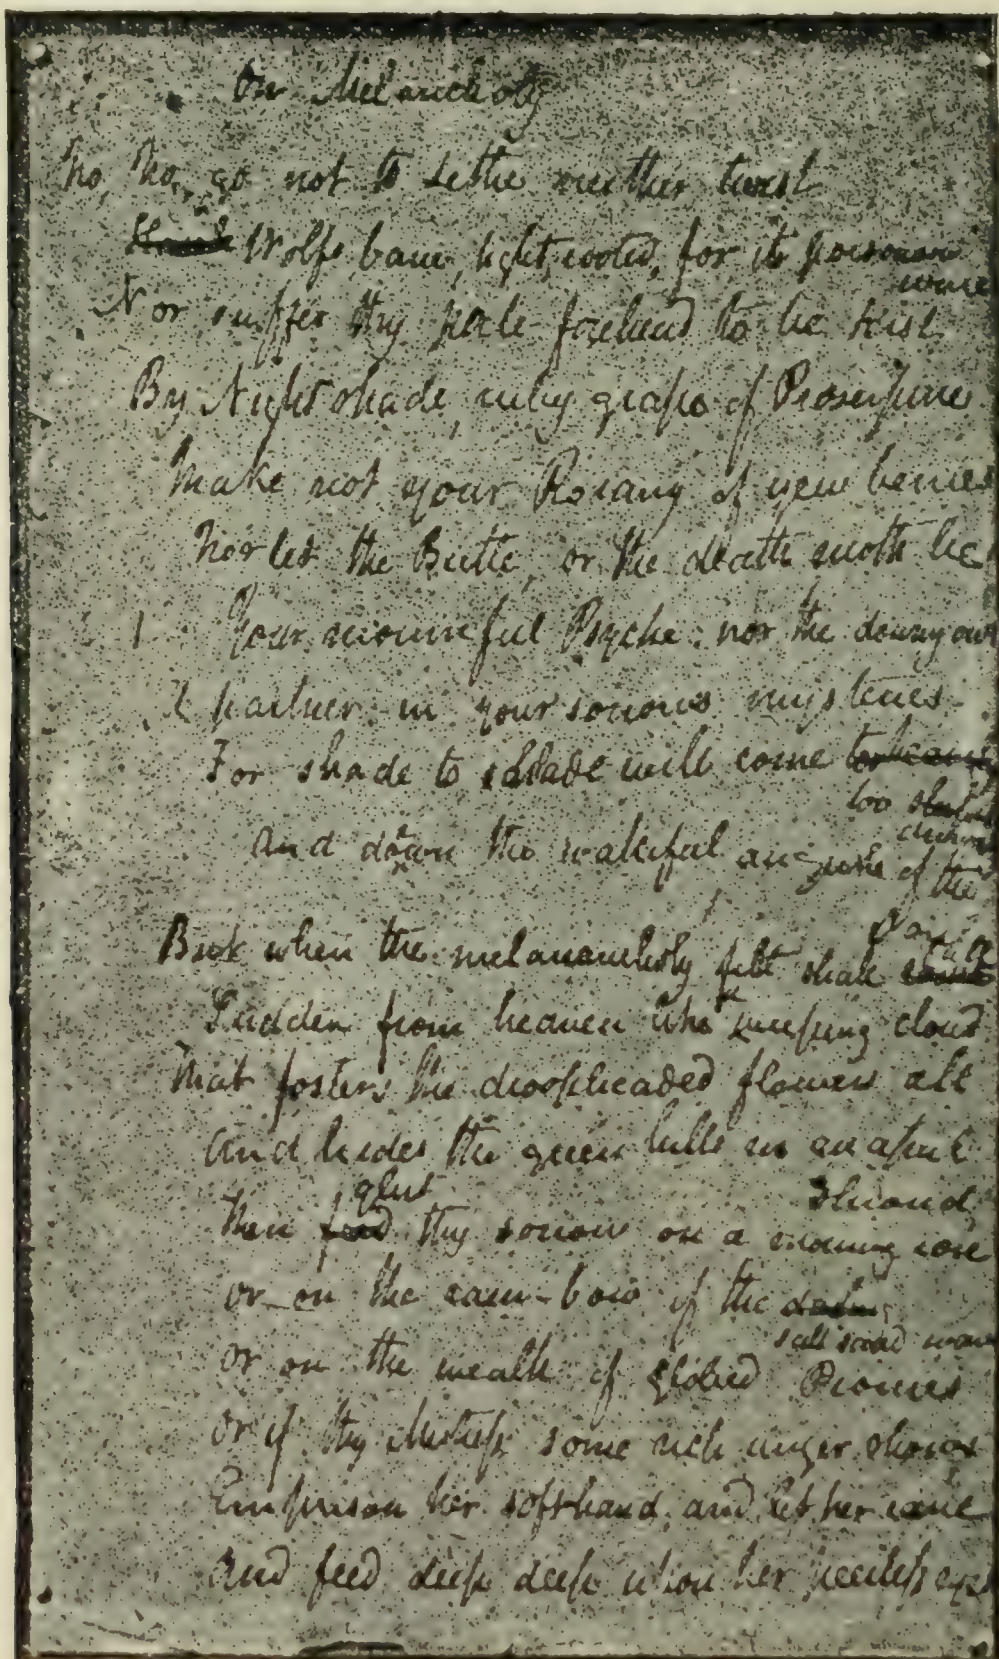 On Melancholy
No, No, go not to Lethe neither twist
Wolfs bane, tight, rooted, for its poisonous
wine
Nor suffer thy pale forehead to be kist
By Nightshade, ruby grape of Proserpine
Make not your Rosary of yew berries
Nor let the Beetle, or the death moth be
Your mournful Psyche nor the downy owl
A partner in your sorrows mysteries
For shade to shade will come
too
And down the wakeful anguish of the
But when the melanancholy fitt shall
fall
Sudden from heaven like a weeping cloud
That fosters the droopheaded flowers all
And hides the green hills in an april
Shroud
glut
Then feed thy sorrow on a morning rose
Or on the rain-bow of the
salt sand wave
Or on the wealth of globed Pionies
Or if thy Mistress some rich anger shows
Emprison her soft hand, and let her rave
And feed deep deep upon her peerless eyes